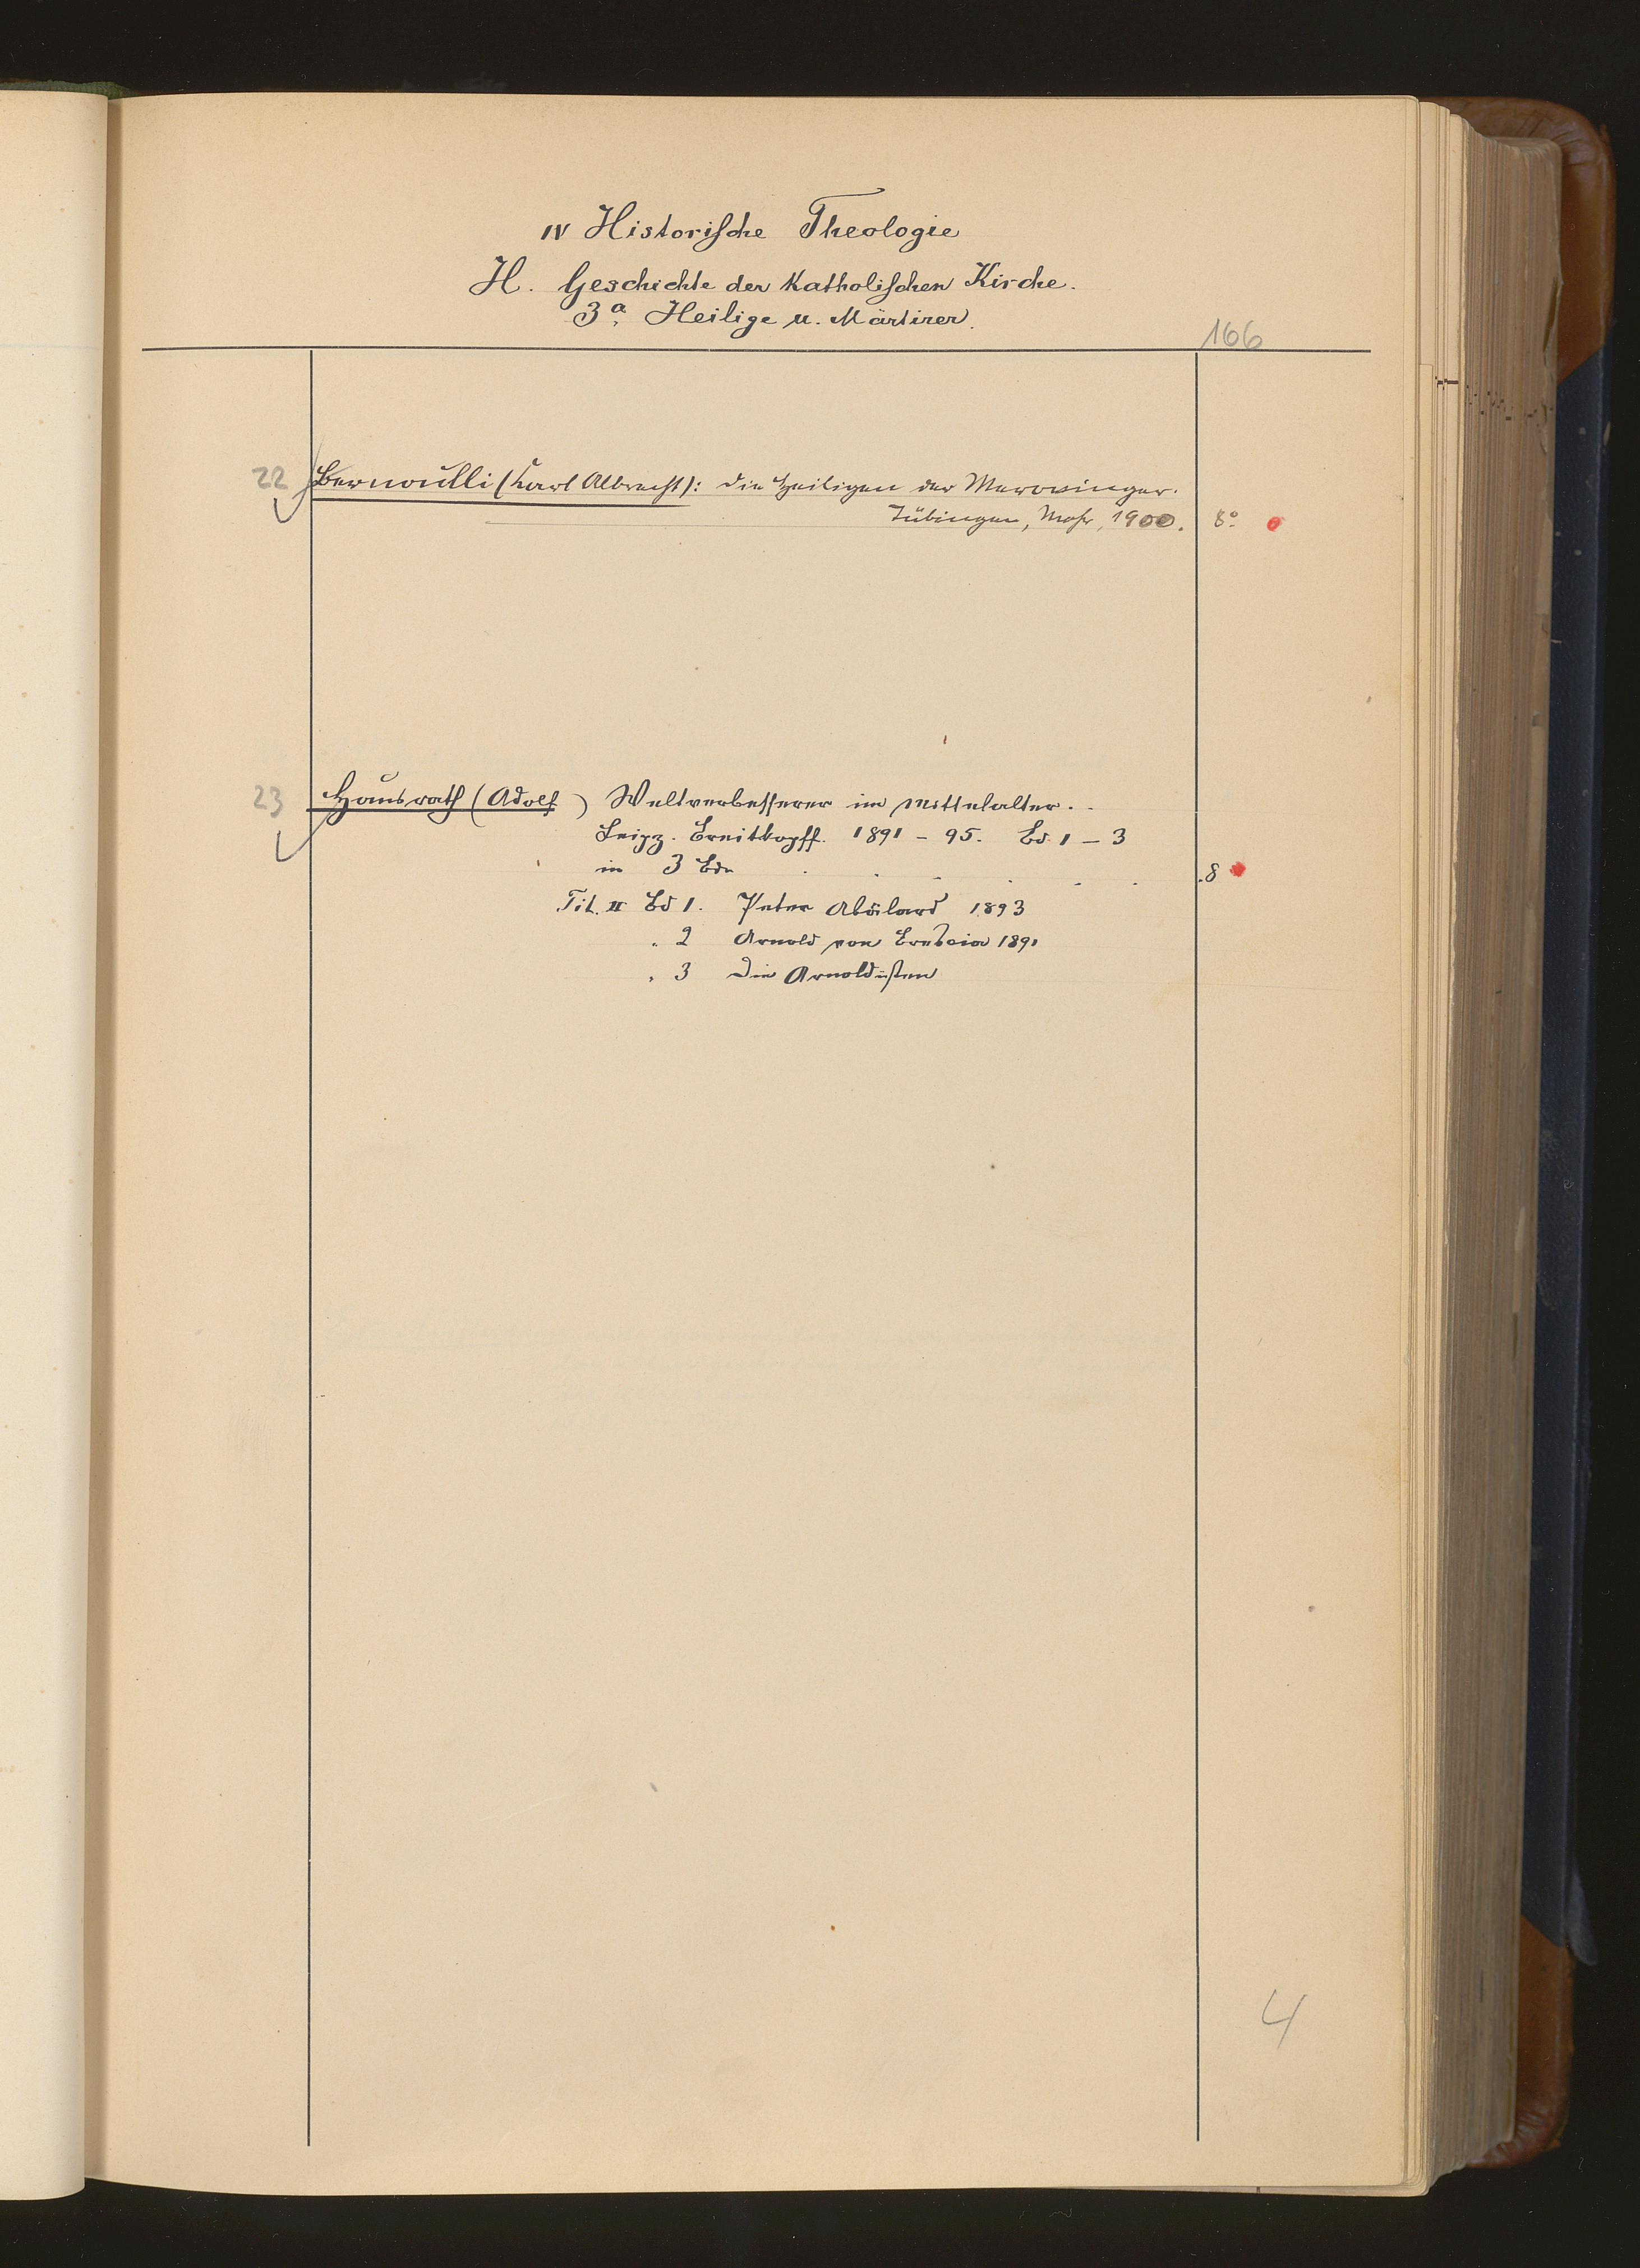 IV Historische Theologie
H. Geschichte der Katholischen Kirche.
3a, Heilige u. Märtirer.
166
22 Bernoulli (Karl Albrecht): Die Heiligen der Merovinger.
Tübingen, Mohr, 1900. 8°
23 Hausrath (Adolf ) Weltverbesserer im Mittelalter.
Leipz. Breitkopff. 1891 - 95. Bd. 1 - 3
in 3 Bdn . . . . . . . 8
Tit. II Bd 1. Peter Abälard 1893
" 2 Arnold von Brescia 1891
" 3 Die Arnoldisten
4